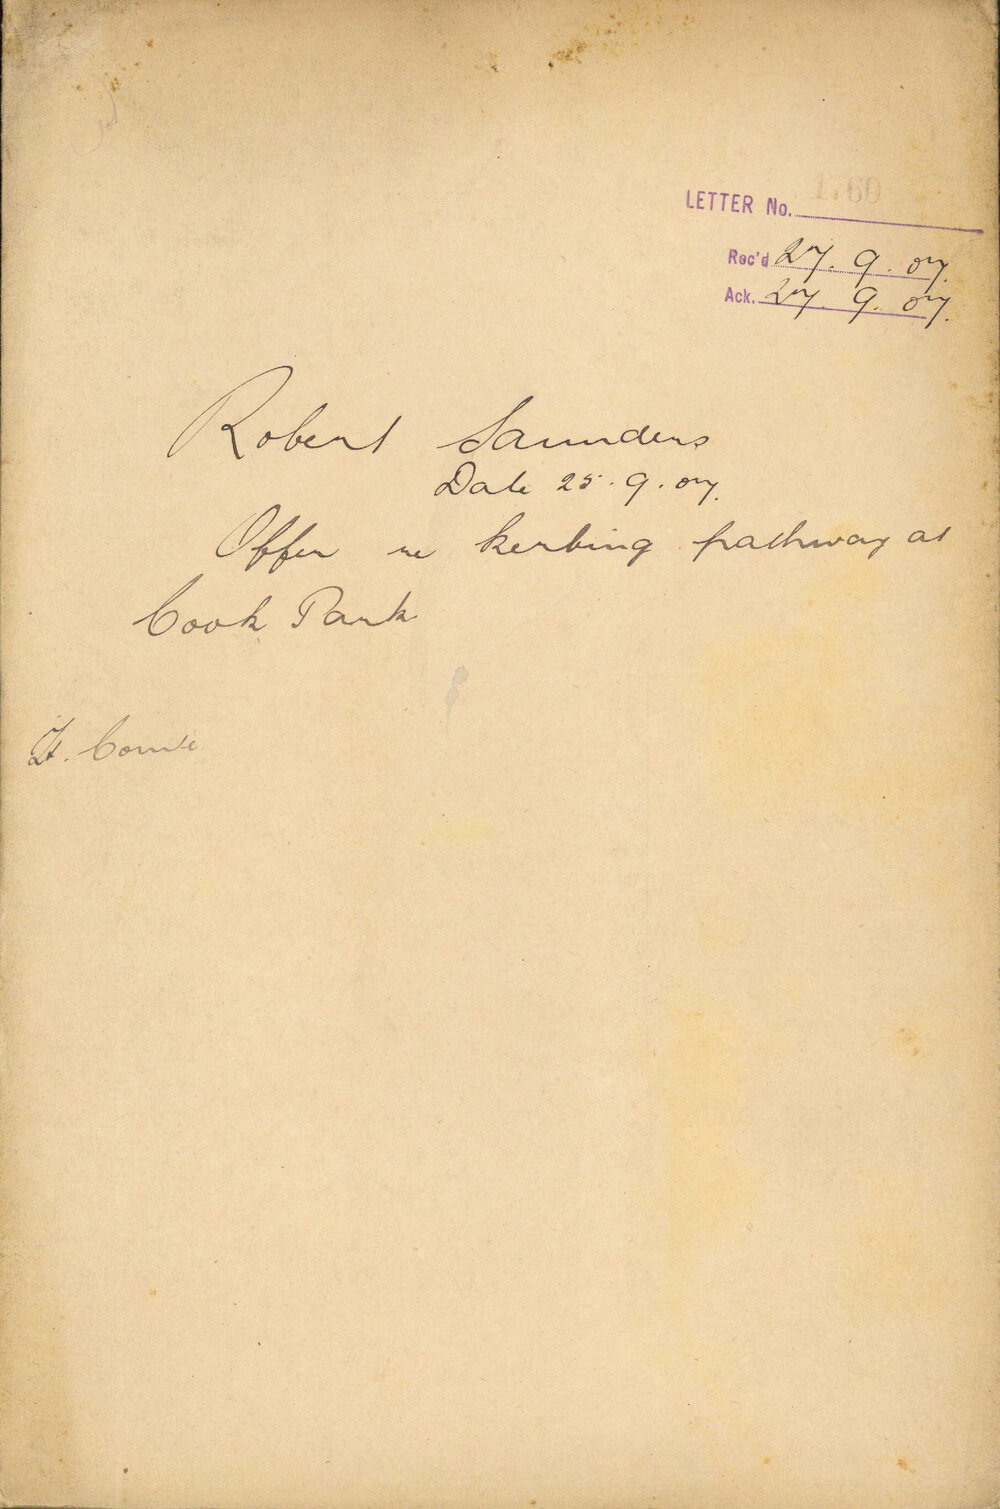 LETTER No. 1760
Rec'd 27.9.07.
Ack. 27.9.07.
Robert Saunders
Date 25.9.07.
Offer re kerbing pathway at
Cook Park